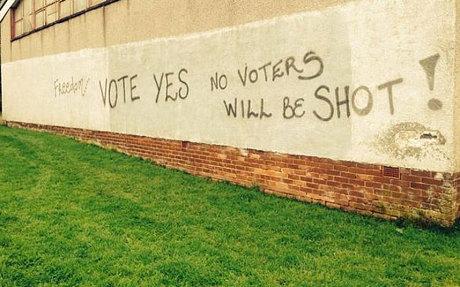 Freedom!
VOTE YES NO VOTERS
WILL BE SHOT!